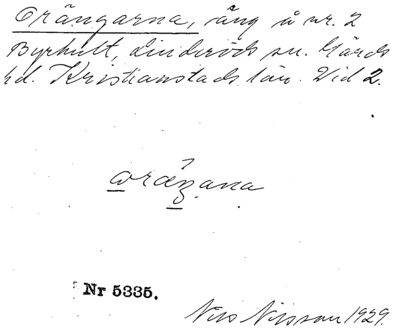 Orängarna, äng å nr. 2
Byrhult, Linderöds sn. Gärds
hd. Kristianstads län. Vid 2.
oræ̂ŋana
Nr 5335.
Nils Nilsson 1929.